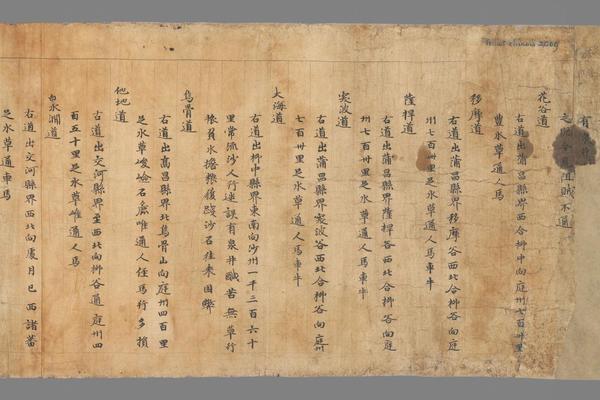 有
之 阻賊不通
花谷道
右道出蒲昌縣界西合柳中向庭州七百卅里
豐水草通人馬
移摩道
右道出蒲昌縣界移摩谷西北合柳谷向庭
州七百卅里足水草通人馬車牛
薩捍道
右道出蒲昌縣界薩捍谷西北合柳谷向庭
州七百卅里足水草通人馬車牛
突波道
右道出蒲昌縣界突波谷西北合柳谷向庭州
七百卅里足水草通人馬車牛
大海道
右道出柳中縣界東南向沙州一千三百六十
里常流沙人行迷誤有泉井醎苦無草行
旅負水擔粮履踐沙石往來困弊
烏骨道
右道出高昌縣界北烏骨山向庭州四百里
足水草峻嶮石麁唯通人徑馬行多損
他地道
右道出交河縣界至西北向柳谷通庭州四
百五十里足水草唯通人馬
白水澗道
右道出交河縣界西北向處月已西諸蕃
足水草通車馬